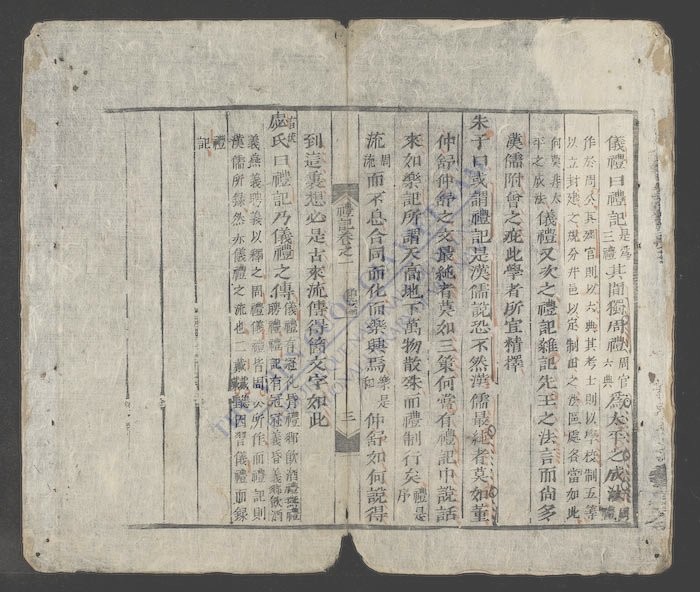 儀禮曰禮記是為三禮其間獨周禮周官六典為太平之成法周禮
作於周公其建官則以六典其考士則以學校制五等
以立封建之規分井邑以定制田之法區處各當如此
何莫非太平之成法儀禮又次之禮記雜記先王之法言而尚多
漢儒附會之疵此學者所宜精擇
朱子曰或謂禮記是漢儒說恐不然漢儒最純者莫如董
仲舒仲舒之文最純者莫如三策何嘗有禮記中說話
來如樂記所謂天高地下萬物散殊而禮制行矣禮是序
流周流而不息合同而化而樂興焉樂是和仲舒如何說得
禮記卷之一
三
到這裏想必是古來流傳得箇文字如此
盧氏曰禮記乃儀禮之傳儀禮有冠禮昏禮鄉飲酒禮燕禮
聘禮禮記有冠義昏義鄉飲酒
義燕義聘義以釋之周禮儀禮皆周公所作而禮記則
漢儒所錄然亦儀禮之流也二戴因習儀禮而錄
禮記